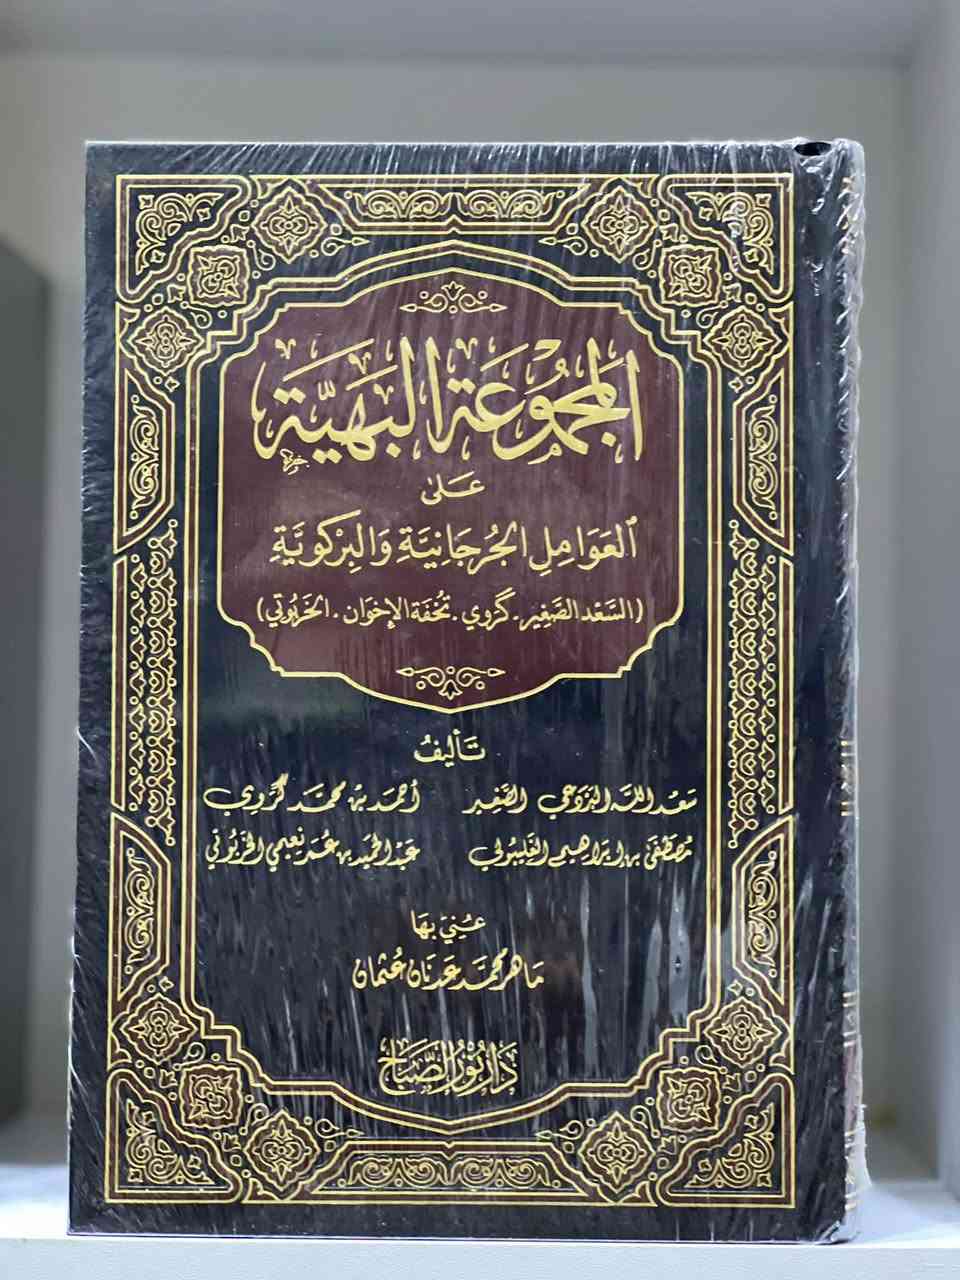 المجموعة البهية
على
العوامل الجرجانية والبركوية
(السعد الصغير - كروي - تحفة الإخوان - الخربوتي)
تأليف
سعد الله البردعي الصغير
أحمد بن محمد كروي
مصطفى بن إبراهيم الغليبولي
عبد الحميد بن عمر نعيمي الخربوتي
عني بها
ماهر محمد عدنان عثمان
دار نور الصباح